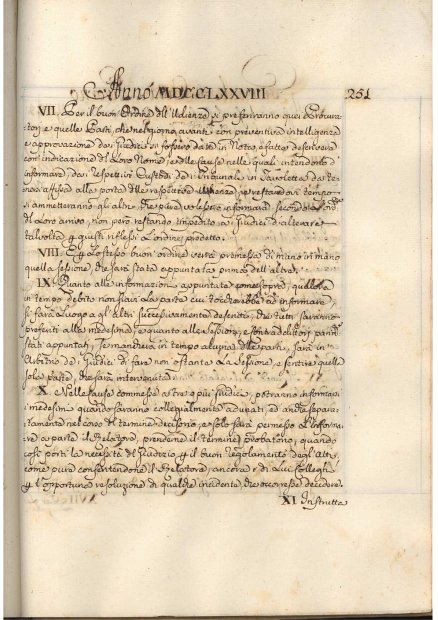 Anno MDCCLXXVIII 251
VII. Per il buon Ordine dell'Udienze si preferiranno quei Procura-
tori e quelle Parti, che nel giorno avanti con preventiva intelligenza
e approvazione dei Giudici si fossero date in Nota, e fatte descrivere
con indicazione del Loro Nome, e delle cause nelle quali intendono d'
informare, dai rispettivi Custodi dei Tribunali in Tavoletta da te-
nersi affissa alla porta delle rispettive Udienze, e restandovi tempo
si ammetteranno gli altri che pure volessero informare secondo l'ord.
del Loro arrivo, non però restando impedito ai Giudici d'alterare
talvolta per giusti riflessi l'ordine predetto.
VIII. Collo stesso buon'ordine verrà permessa di mano in mano
quella sessione, che sarà stata appuntata prima dell'altre.
IX. Quanto alle informazioni appuntate come sopra, qualora
in tempo debito non siavi la parte cui toccherebbe ad informare,
si farà Luogo agl'altri successivamente descritti, che tutti saranno
preferiti alla medesima, e quanto alle sessioni,
stati appuntati, se mancherà in tempo alcuna delle parti, sarà in
Arbitrio dei Giudici di fare non ostante La sessione, e sentire quella
sola parte, che sarà intervenuta.
X. Nelle cause commesse a tre o più Giudici, potranno informarsi
i medesimi quando saranno collegialmente adunati, ed anche separa-
tamente nel corso del termine decisorio, e solo sarà permesso l'informa-
re a parte il Relatore, pendente il termine probatorio, quando
così porti la necessità del Giudizio, per il buon regolamento degl'Atti,
come pure consentendone il Relatore, ancora i di Lui Colleghi
per l'opportuna resoluzione di qualche incidente, che occorresse decidere.
XI Instrutta